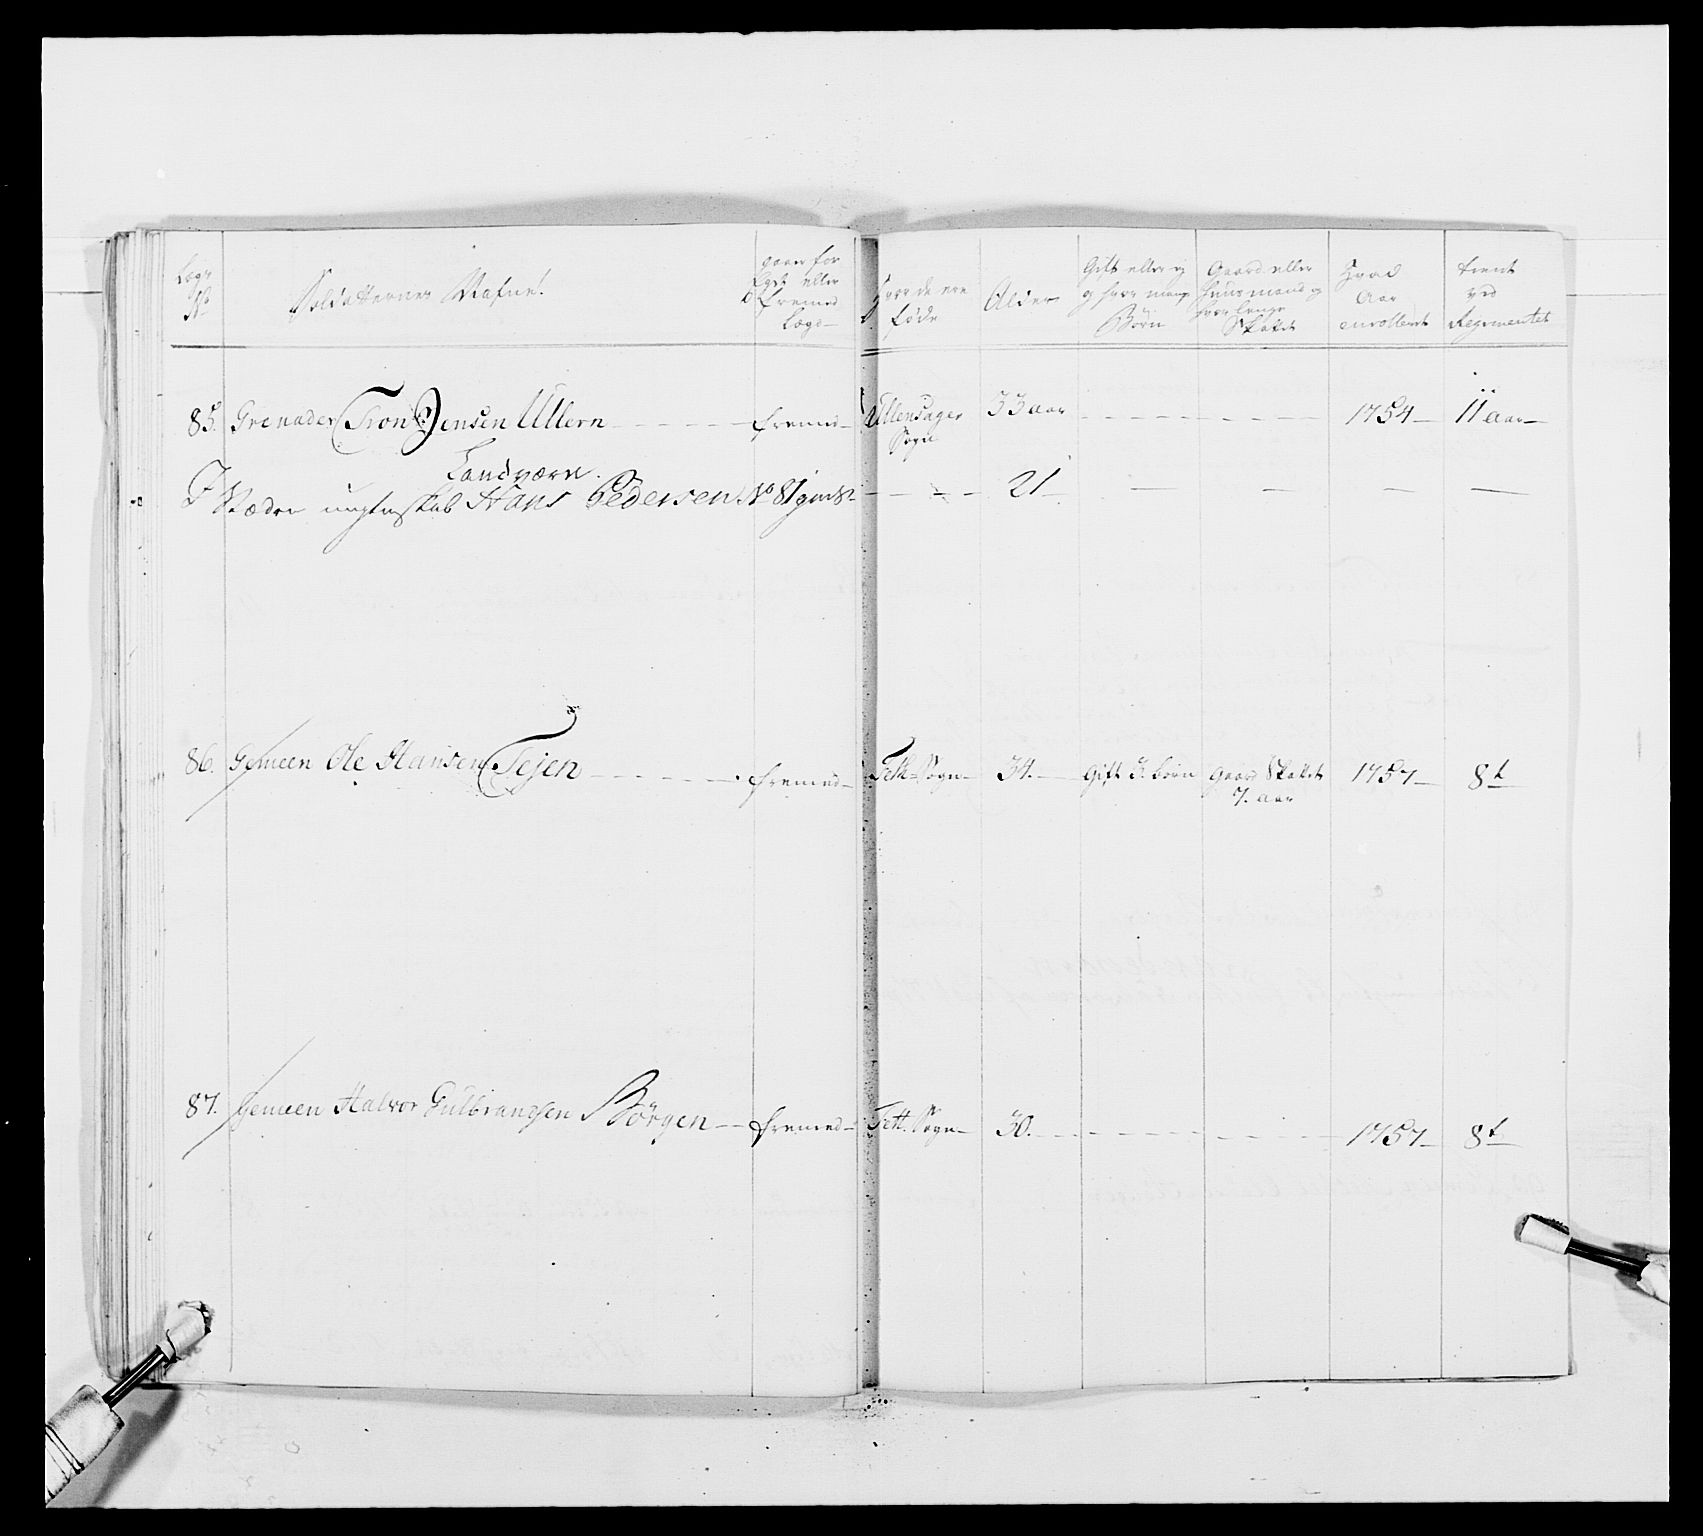 Lægs No
Soldatternes Nafne!
gaar for Egt eller fremed Lægd
Hvor de ere føde
Alder
Gift eller ej og hvor mange Börn
Gaard eller Huusmand og hvor lenge Skattet
Hvad Aar enrolleret
tient ved Regementet
85. Grenader Tron Jensen Ullern fremed Ullensager Sogn 33 aar 1754 11 aar
Landværn
Hans Pedersen No 81 21
86. Gemeen Ole Hansen Tejen fremed Feth Sogn 34. Gift 3. börn gaard Skattet 7. aar 1757 8t
87. Gemeen Halvor Gulbrandsen Börgen fremed Fett Sogn 30. 1757 8t